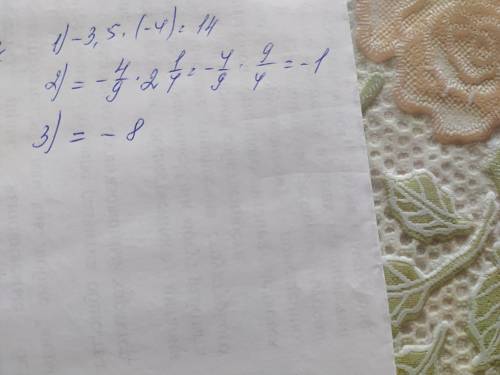 1) -3,5 · (-4) = 14
2) = - 4/9 · 2 1/4 = - 4/9 · 9/4 = -1
3) = - 8